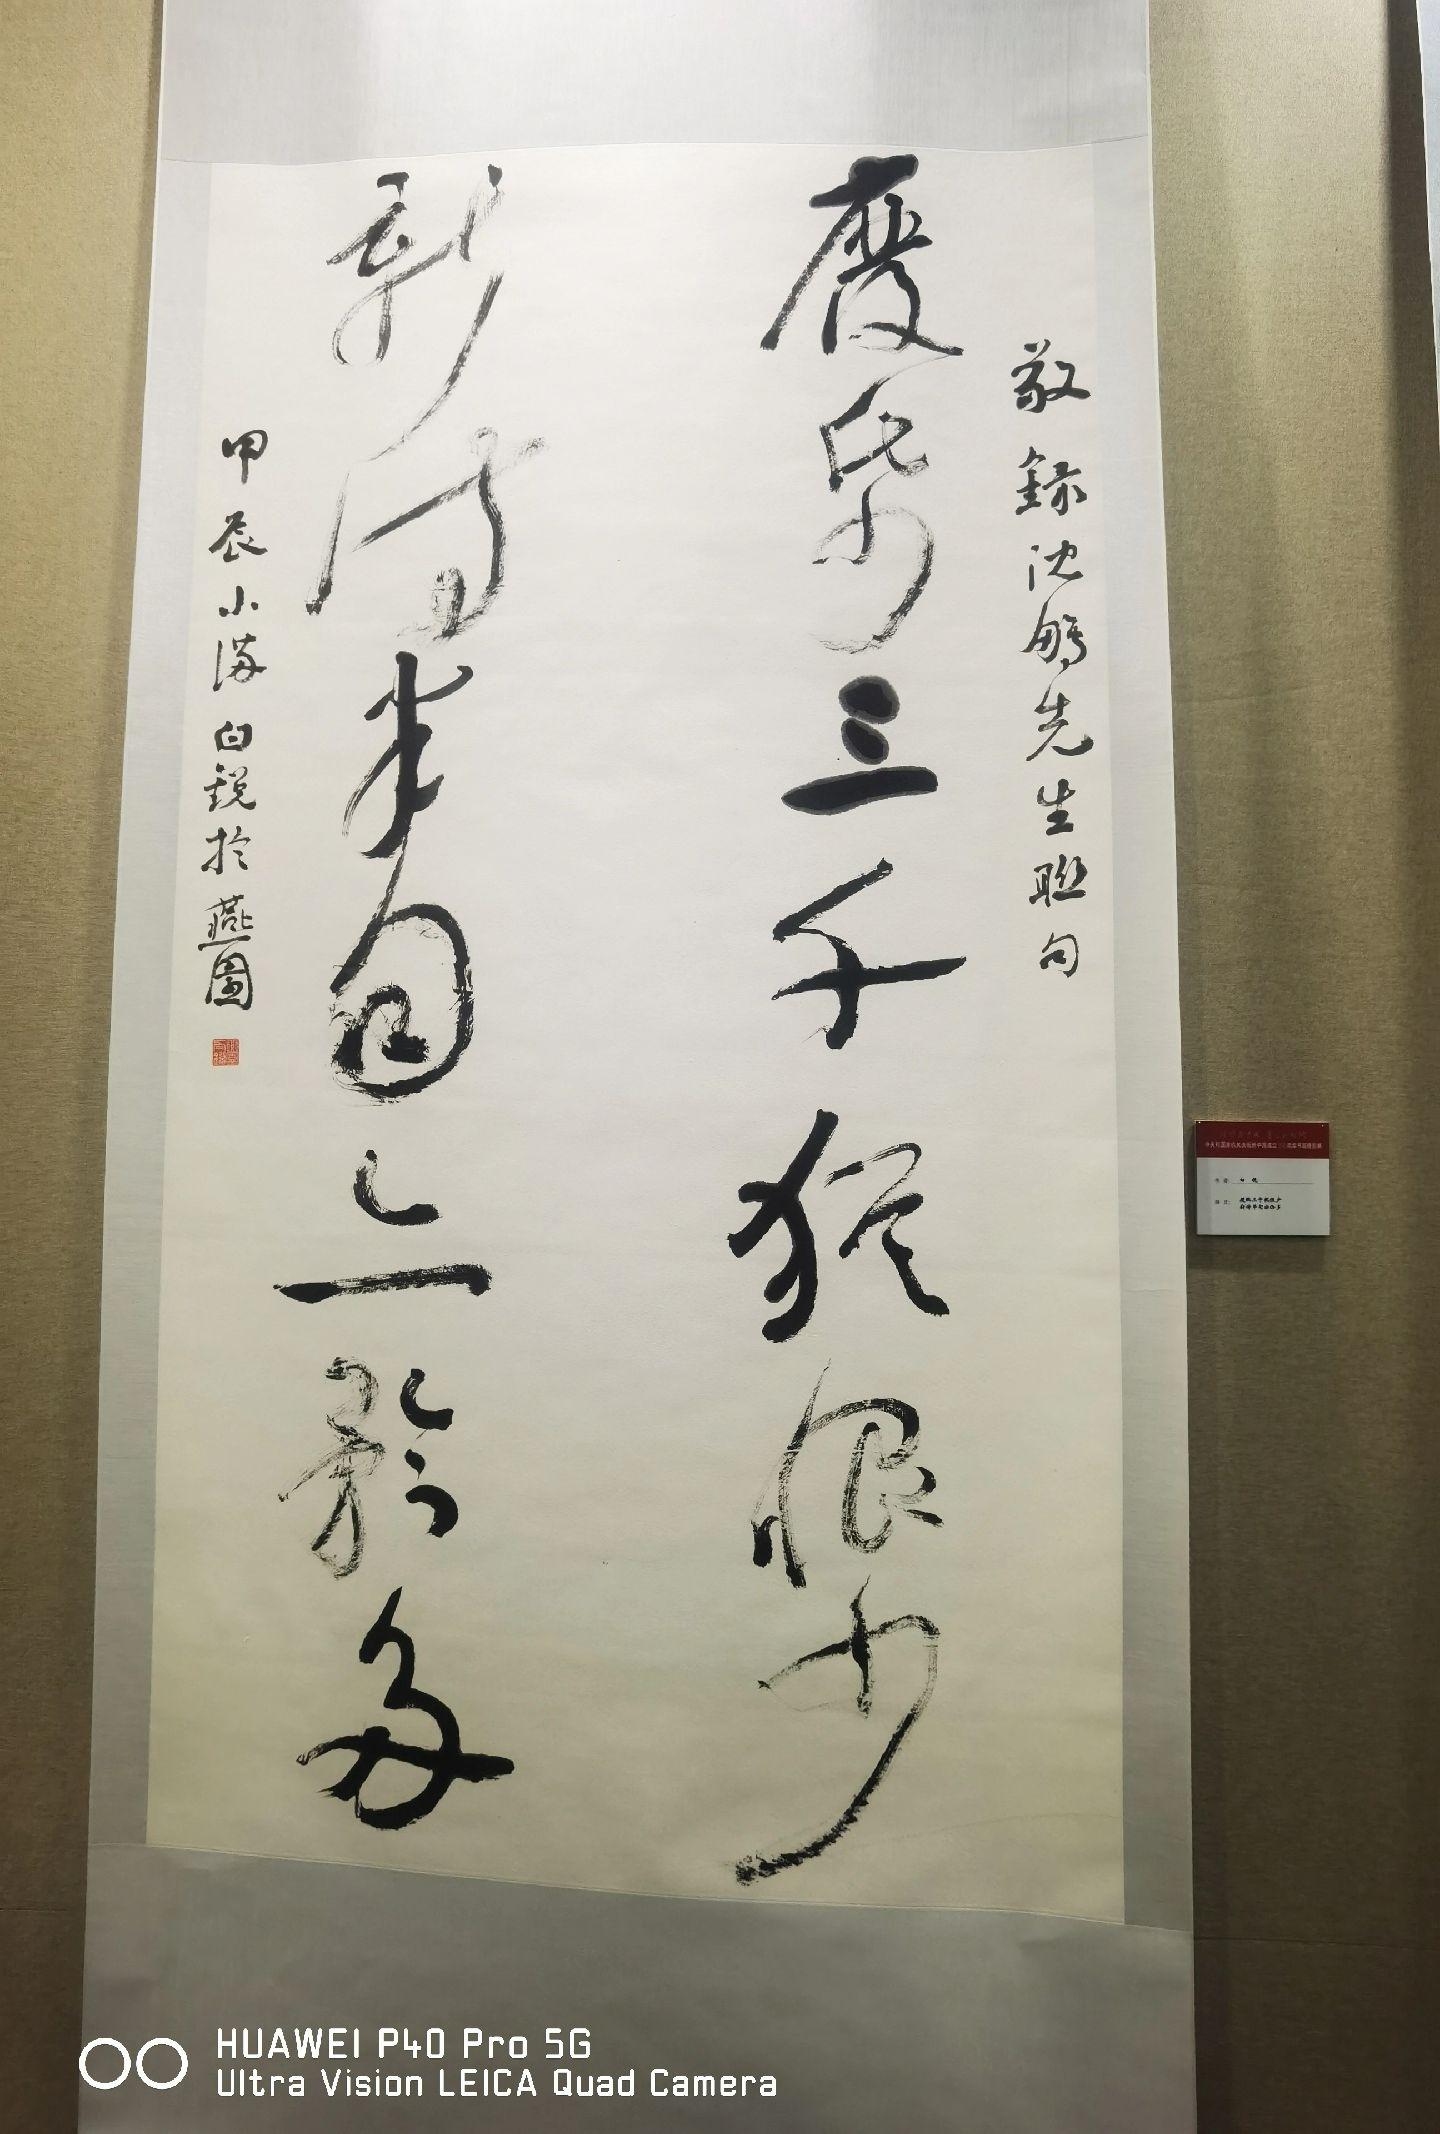 敬録沈鹏先生聯句
廢紙三千猶恨少
新詩半句亦矜多
甲辰小滿白銳於燕園
HUAWEI P40 Pro 5G
Ultra Vision LEICA Quad Camera